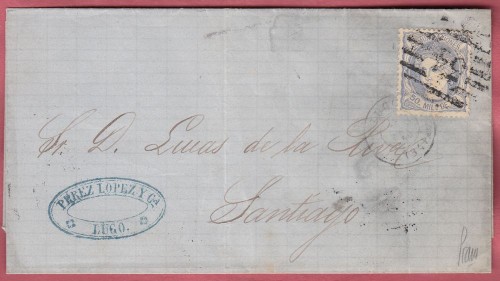 54
50 MILS
Sr. D. Lucas de la Riva
Santiago
PEREZ LOPEZ Y Cª
LUGO.